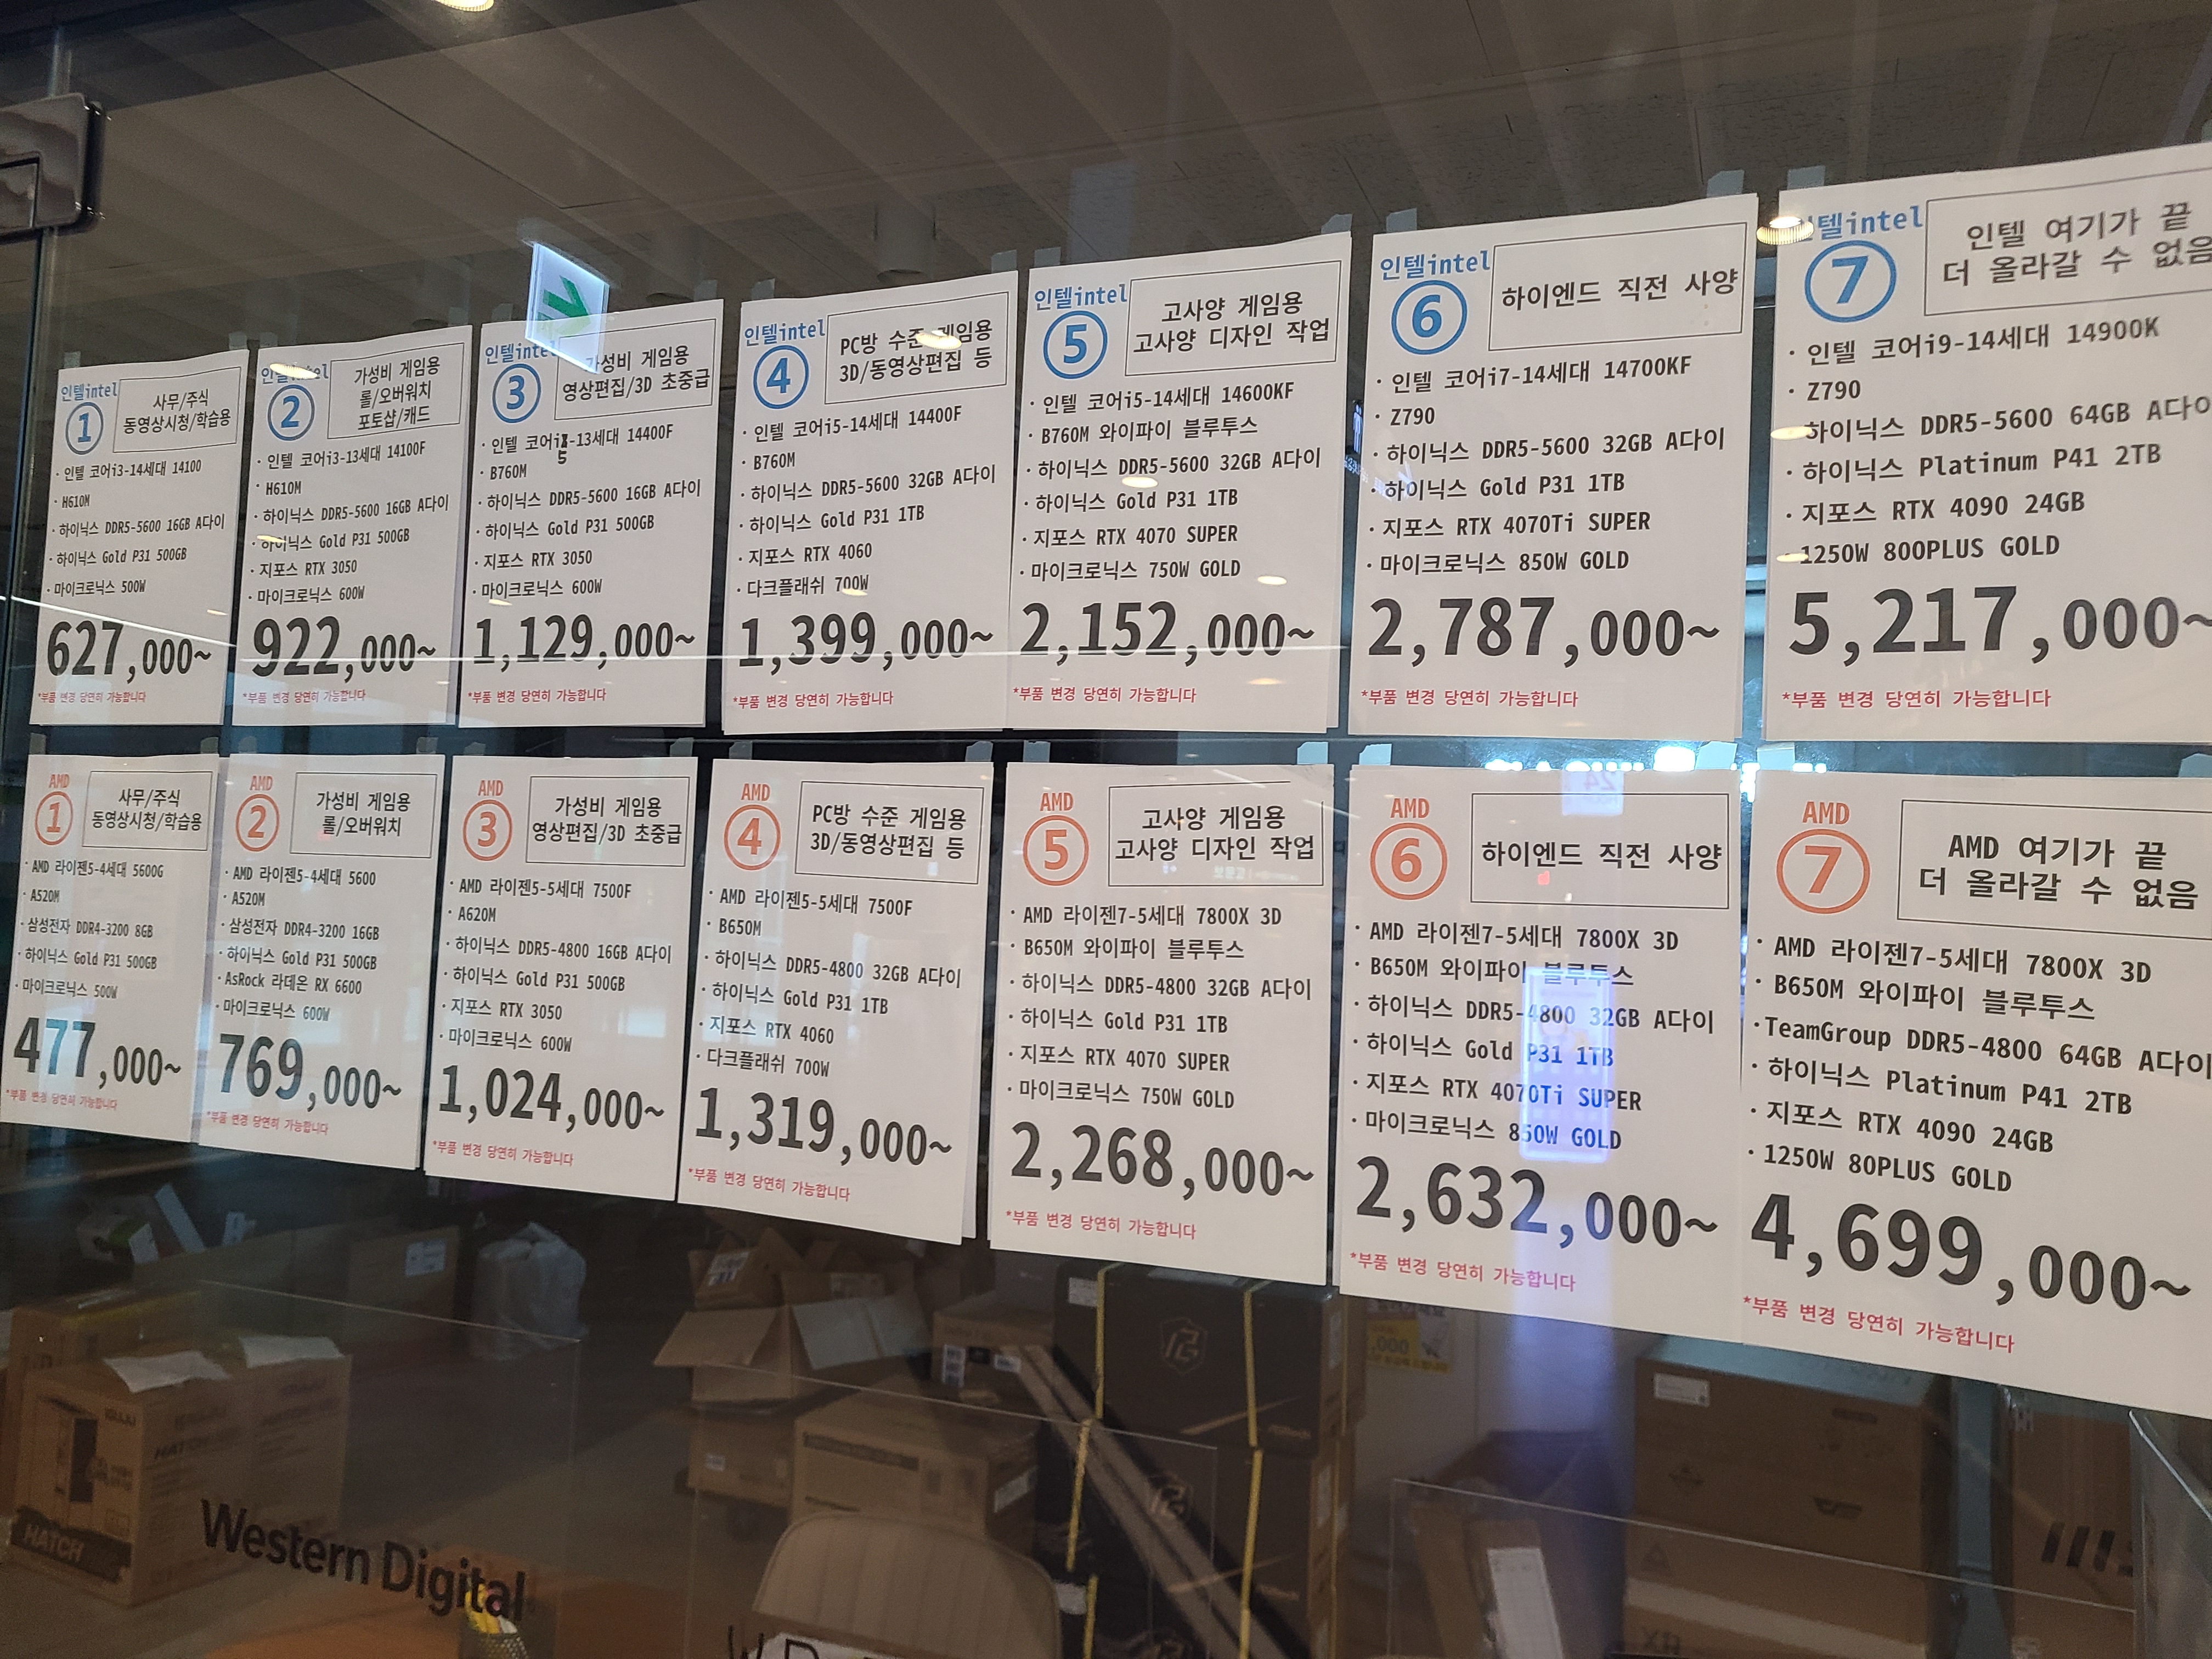 인텔intel
1
사무/주식
동영상시청/학습용
· 인텔 코어i3-14세대 14100
· H610M
· 하이닉스 DDR5-5600 16GB A다이
· 하이닉스 Gold P31 500GB
· 마이크로닉스 500W
627,000~
*부품 변경 당연히 가능합니다
인텔intel
2
가성비 게임용
롤/오버워치
포토샵/캐드
· 인텔 코어i3-13세대 14100F
· H610M
· 하이닉스 DDR5-5600 16GB A다이
· 하이닉스 Gold P31 500GB
· 지포스 RTX 3050
· 마이크로닉스 600W
922,000~
*부품 변경 당연히 가능합니다
인텔intel
3
가성비 게임용
영상편집/3D 초중급
· 인텔 코어i5-13세대 14400F
· B760M
· 하이닉스 DDR5-5600 16GB A다이
· 하이닉스 Gold P31 500GB
· 지포스 RTX 3050
· 마이크로닉스 600W
1,129,000~
*부품 변경 당연히 가능합니다
인텔intel
4
PC방 수준 게임용
3D/동영상편집 등
· 인텔 코어i5-14세대 14400F
· B760M
· 하이닉스 DDR5-5600 32GB A다이
· 하이닉스 Gold P31 1TB
· 지포스 RTX 4060
· 다크플래쉬 700W
1,399,000~
*부품 변경 당연히 가능합니다
인텔intel
5
고사양 게임용
고사양 디자인 작업
· 인텔 코어i5-14세대 14600KF
· B760M 와이파이 블루투스
· 하이닉스 DDR5-5600 32GB A다이
· 하이닉스 Gold P31 1TB
· 지포스 RTX 4070 SUPER
· 마이크로닉스 750W GOLD
2,152,000~
*부품 변경 당연히 가능합니다
인텔intel
6
하이엔드 직전 사양
· 인텔 코어i7-14세대 14700KF
· Z790
· 하이닉스 DDR5-5600 32GB A다이
· 하이닉스 Gold P31 1TB
· 지포스 RTX 4070Ti SUPER
· 마이크로닉스 850W GOLD
2,787,000~
*부품 변경 당연히 가능합니다
인텔intel
7
인텔 여기가 끝
더 올라갈 수 없음
· 인텔 코어i9-14세대 14900K
· Z790
· 하이닉스 DDR5-5600 64GB A다이
· 하이닉스 Platinum P41 2TB
· 지포스 RTX 4090 24GB
· 1250W 800PLUS GOLD
5,217,000~
*부품 변경 당연히 가능합니다
AMD
1
사무/주식
동영상시청/학습용
· AMD 라이젠5-4세대 5600G
· A520M
· 삼성전자 DDR4-3200 8GB
· 하이닉스 Gold P31 500GB
· 마이크로닉스 500W
477,000~
*부품 변경 당연히 가능합니다
AMD
2
가성비 게임용
롤/오버워치
· AMD 라이젠5-4세대 5600
· A520M
· 삼성전자 DDR4-3200 16GB
· 하이닉스 Gold P31 500GB
· AsRock 라데온 RX 6600
· 마이크로닉스 600W
769,000~
*부품 변경 당연히 가능합니다
AMD
3
가성비 게임용
영상편집/3D 초중급
· AMD 라이젠5-5세대 7500F
· A620M
· 하이닉스 DDR5-4800 16GB A다이
· 하이닉스 Gold P31 500GB
· 지포스 RTX 3050
· 마이크로닉스 600W
1,024,000~
*부품 변경 당연히 가능합니다
AMD
4
PC방 수준 게임용
3D/동영상편집 등
· AMD 라이젠5-5세대 7500F
· B650M
· 하이닉스 DDR5-4800 32GB A다이
· 하이닉스 Gold P31 1TB
· 지포스 RTX 4060
· 다크플래쉬 700W
1,319,000~
*부품 변경 당연히 가능합니다
AMD
5
고사양 게임용
고사양 디자인 작업
· AMD 라이젠7-5세대 7800X 3D
· B650M 와이파이 블루투스
· 하이닉스 DDR5-4800 32GB A다이
· 하이닉스 Gold P31 1TB
· 지포스 RTX 4070 SUPER
· 마이크로닉스 750W GOLD
2,268,000~
*부품 변경 당연히 가능합니다
AMD
6
하이엔드 직전 사양
· AMD 라이젠7-5세대 7800X 3D
· B650M 와이파이 블루투스
· 하이닉스 DDR5-4800 32GB A다이
· 하이닉스 Gold P31 1TB
· 지포스 RTX 4070Ti SUPER
· 마이크로닉스 850W GOLD
2,632,000~
*부품 변경 당연히 가능합니다
AMD
7
AMD 여기가 끝
더 올라갈 수 없음
· AMD 라이젠7-5세대 7800X 3D
· B650M 와이파이 블루투스
·TeamGroup DDR5-4800 64GB A다이
· 하이닉스 Platinum P41 2TB
· 지포스 RTX 4090 24GB
· 1250W 80PLUS GOLD
4,699,000~
*부품 변경 당연히 가능합니다
HATCH
Western Digital